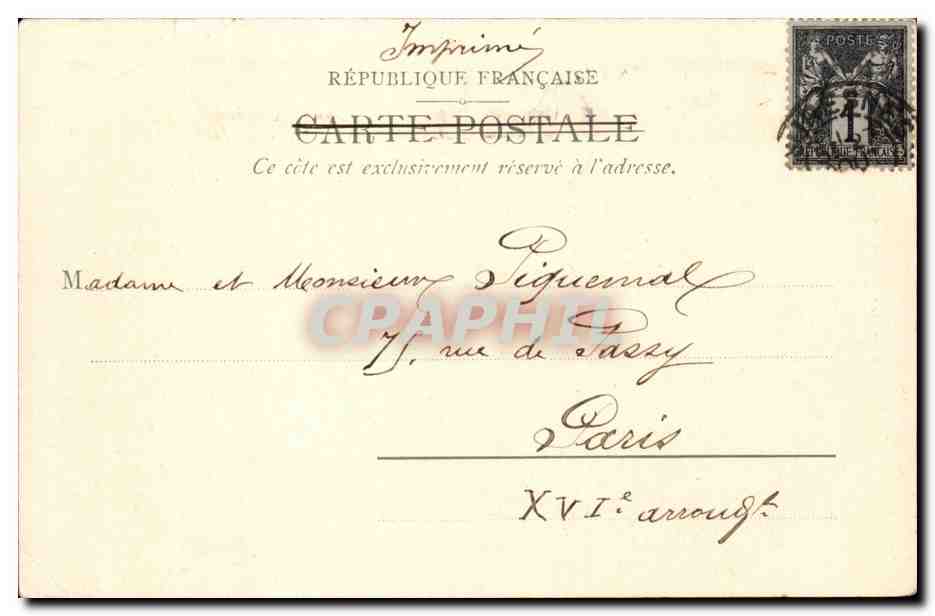 Imprimé
RÉPUBLIQUE FRANÇAISE
CARTE POSTALE
Ce côté est exclusivement réservé à l'adresse.
POSTES
1
REPUBLIQUE FRANCAISE
Madame et Monsieur Piquemal
CPAPHIL
75, rue de Passy
Paris
XVIe arrondt